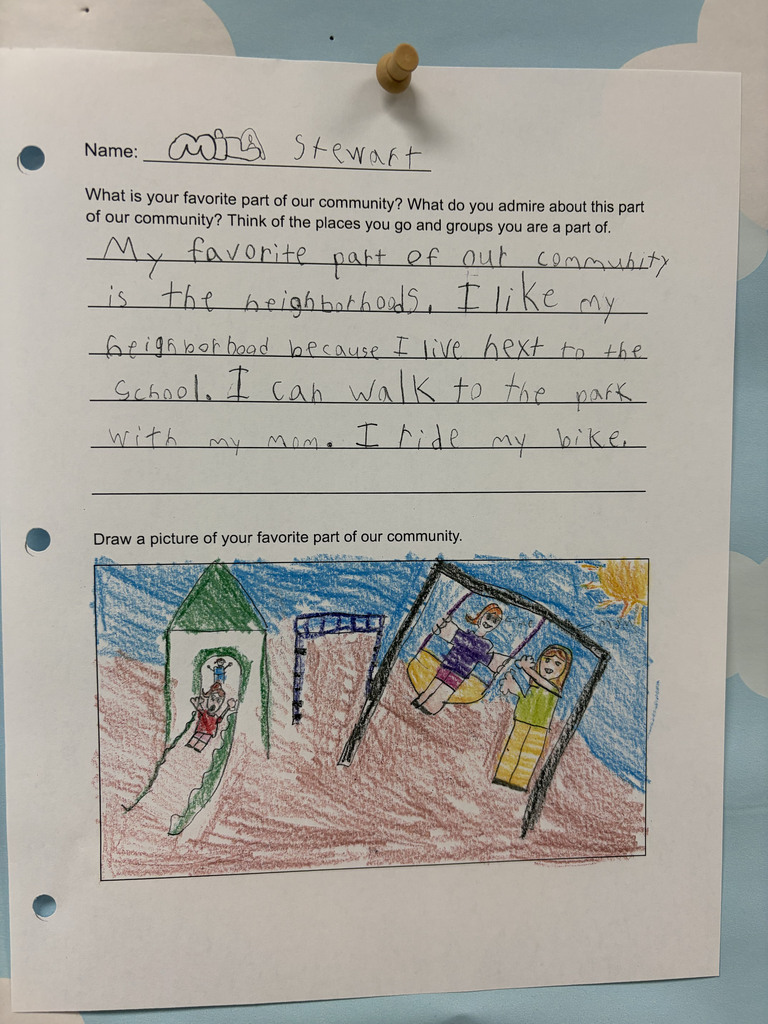 Name: Miss Stewart
What is your favorite part of our community? What do you admire about this part
of our community? Think of the places you go and groups you are a part of.
My favorite part of our community
is the neighborhoods. I like my
neighborhood because I live next to the
school. I can walk to the park
with my mom. I ride my bike.
Draw a picture of your favorite part of our community.